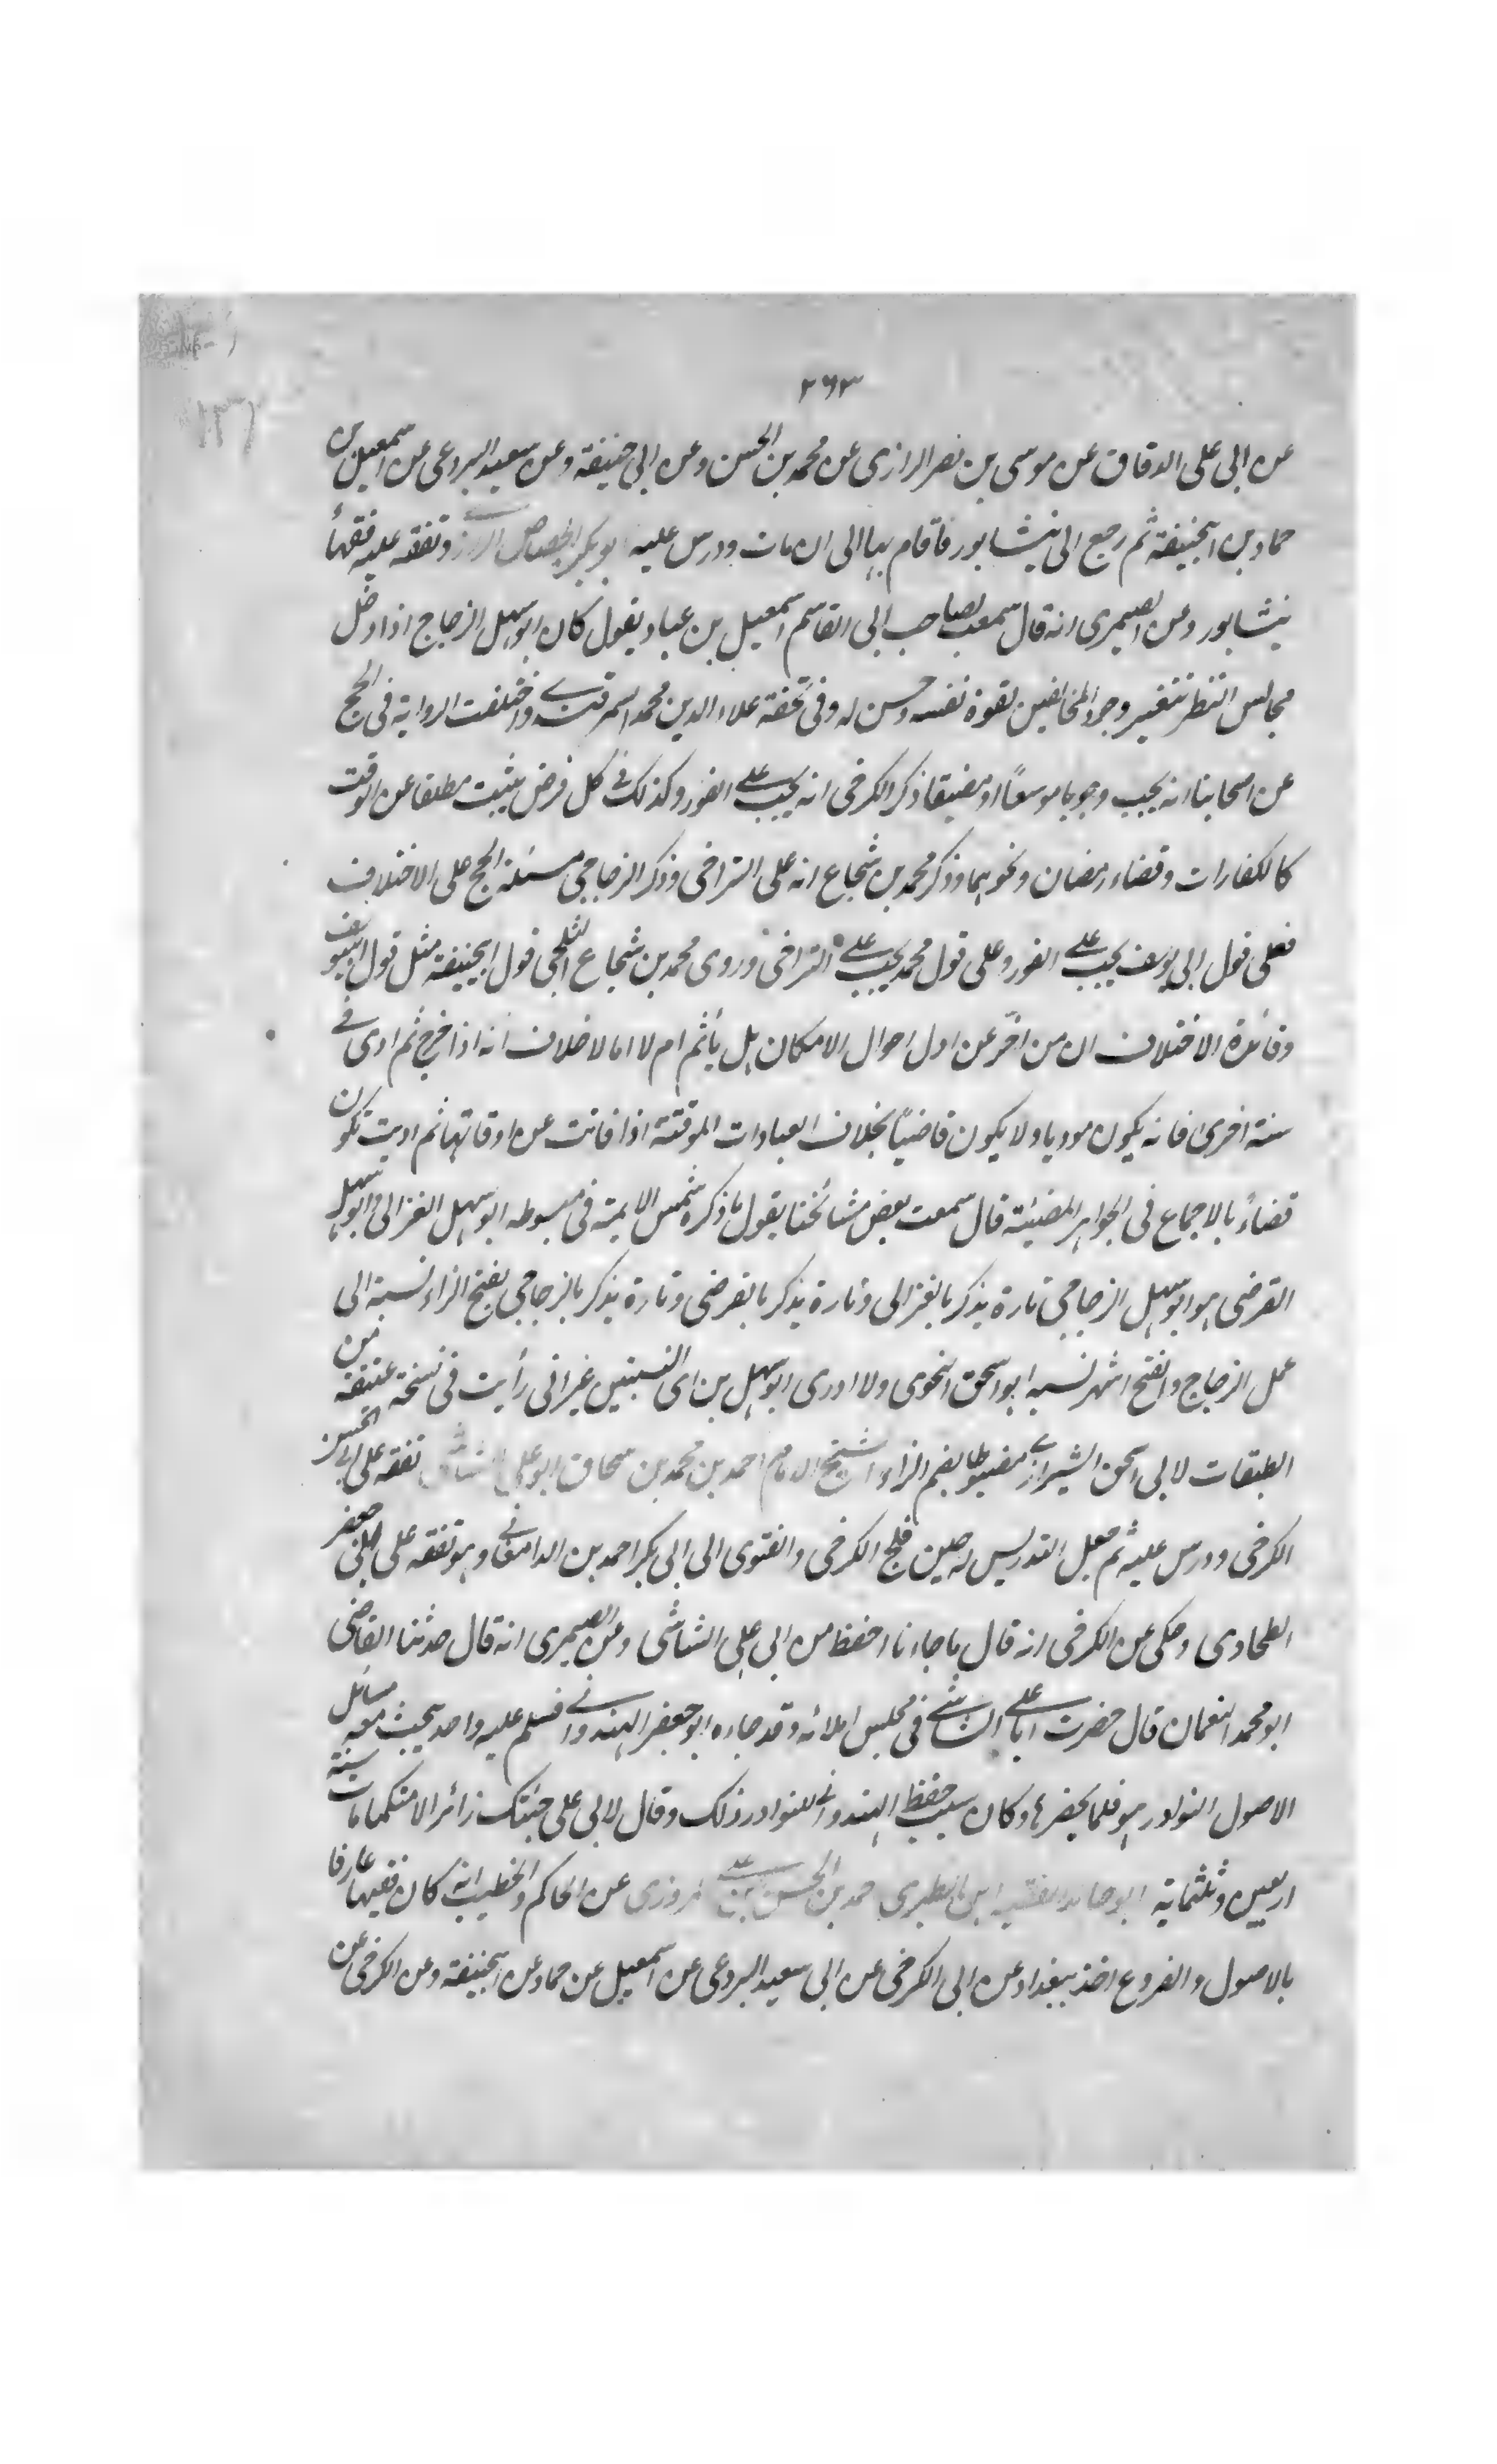 ٢٦٣
عن ابى على الدقاق عن موسى بن نصر الرازى عن محمد بن الحسن وعن ابى حنيفة وعن سعيد البردعى عن اسمعيل بن
حماد بن ابيحنيفة ثم رجع الى نيشابور فاقام بها الى ان مات ودرس عليه ابو بكر الجصاص الرازى وتفقه عليه فقهاء
نيشابور وعن الصيمرى انه قال سمعت الصاحب ابى القاسم اسمعيل بن عباد يقول كان ابو سهل الزجاج اذا دخل
مجالس النظر تتغير وجوه المخالفين لقوة نفسه وحسن له وفى تحفة علاء الدين محمد السمرقندى واختلفت الرواية فى الحج
عن اصحابنا انه يجب وجوبا موسعًا او مضيقا ذكر الكرخى انه يجب على الفور وكذلك فى كل فرض يثبت مطلقا عن الوقت
كالكفارات وقضاء رمضان ونحوهما وذكر محمد بن شجاع انه على التراخى وذكر الزجاجى مسئلة الحج على الاختلاف
فعلى قول ابى يوسف يجب على الفور وعلى قول محمد يجب على التراخى وروى محمد بن شجاع الثلجى قول ابيحنيفة مثل قول ابيوسف
وفائدة الاختلاف ان من اخّر عن اول احوال الامكان هل يأثم ام لا اما لا خلاف انه اذا خرج ثم ادى فى
سنة اخرى فانه يكون موديا ولا يكون قاضيًا بخلاف العبادات الموقتة اذا فاتت عن اوقاتها ثم اديت تكون
قضاءً بالاجماع فى الجواهر المضيئة قال سمعت بعض مشائخنا يقول ما ذكره شمس الايمة فى مبسوطه ابو سهل الغزالى وابو سهل
الفرضى هو ابو سهل الزجاجى تارة يذكر بالغزالى وتارة يذكر بالفرضى وتارة يذكر بالزجاجى بفتح الزاء نسبة الى
عمل الزجاج والفتح اشهر نسبه ابو اسحق النحوى ولا ادرى ابو سهل من اى النسبتين غير انى رأيت فى نسخة عتيقة من
الطبقات لابى اسحق الشيرازى مضبوطا بضم الزاء الشيخ الامام احمد بن محمد بن اسحاق ابو على الشاشى تفقه على ابى الحسن
الكرخى ودرس عليه ثم جعل التدريس له حين فلج الكرخى والفتوى الى ابى بكر احمد بن الدامغانى وهو تفقه على ابى جعفر
الطحاوى وحكى عن الكرخى انه قال ما جاءنا احفظ من ابى على الشاشى وعن الصيمرى انه قال حدثنا القاضى
ابو محمد النعمان قال حضرت ابا على الشاشى فى مجلس املائه وقد جاءه ابو جعفر الهندوانى فسلم عليه واخذ يبحث معه مسائل
الاصول النوادر هو فلما يحضرها وكان سبب حفظ الهندوانى للنوادر ذلك وقال لابى على جئتك زائرا لا متكلما مات سنة
اربعين وثلثماية ابو حامد الفقيه ابن الطبرى احمد بن الحسن بن على المروزى عن الحاكم والخطيب انه كان فقيها عارفا
بالاصول والفروع اخذ ببغداد عن ابى الكرخى عن ابى سعيد البردعى عن اسمعيل عن حماد عن ابيحنيفة وعن الكرخى عن